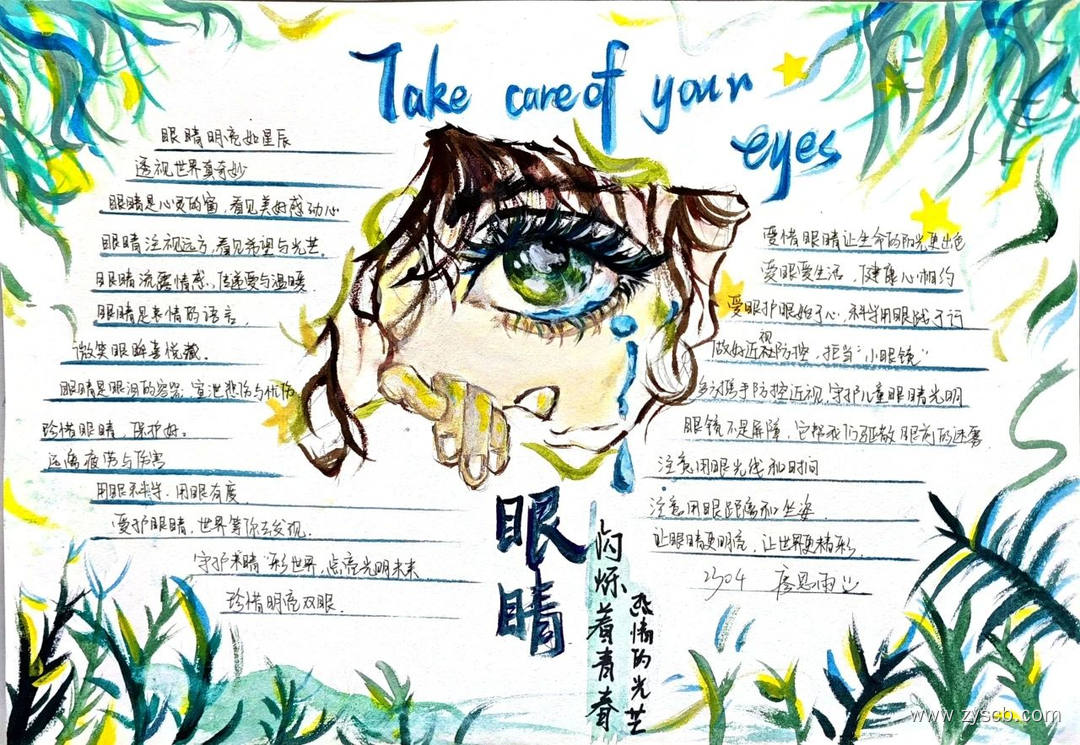 Take care of your
eyes
眼睛明亮如星辰
透视世界真奇妙
眼睛是心灵的窗，看见美好感动心
眼睛注视远方，看见希望与光芒，
眼睛流露情感，传递爱与温暖，
眼睛是表情的语言，
微笑眼眸喜悦藏。
眼睛是眼泪的容器，宣泄悲伤与忧伤
珍惜眼睛，保护好。
远离疲伤与伤害
用眼科学，用眼有度，
爱护眼睛，世界等你去发现．
守护未睛"彩世界，点亮光明未来
珍惜明亮双眼．
爱惜眼睛让生命的阳光更出色
爱眼爱生活，健康心相约
爱眼护眼始于心，科学用眼践于行
做好近视防控，拒当"小眼镜"
多方携手防控近视，守护儿童眼睛光明
眼镜不是屏障，它帮我们驱散眼前的迷雾
注意用眼光线和时间
注意用眼距离和坐姿
让眼睛更明亮，让世界更精彩，
2304
眼睛
闪烁着青春
热情的光芒
www.zyscb.com